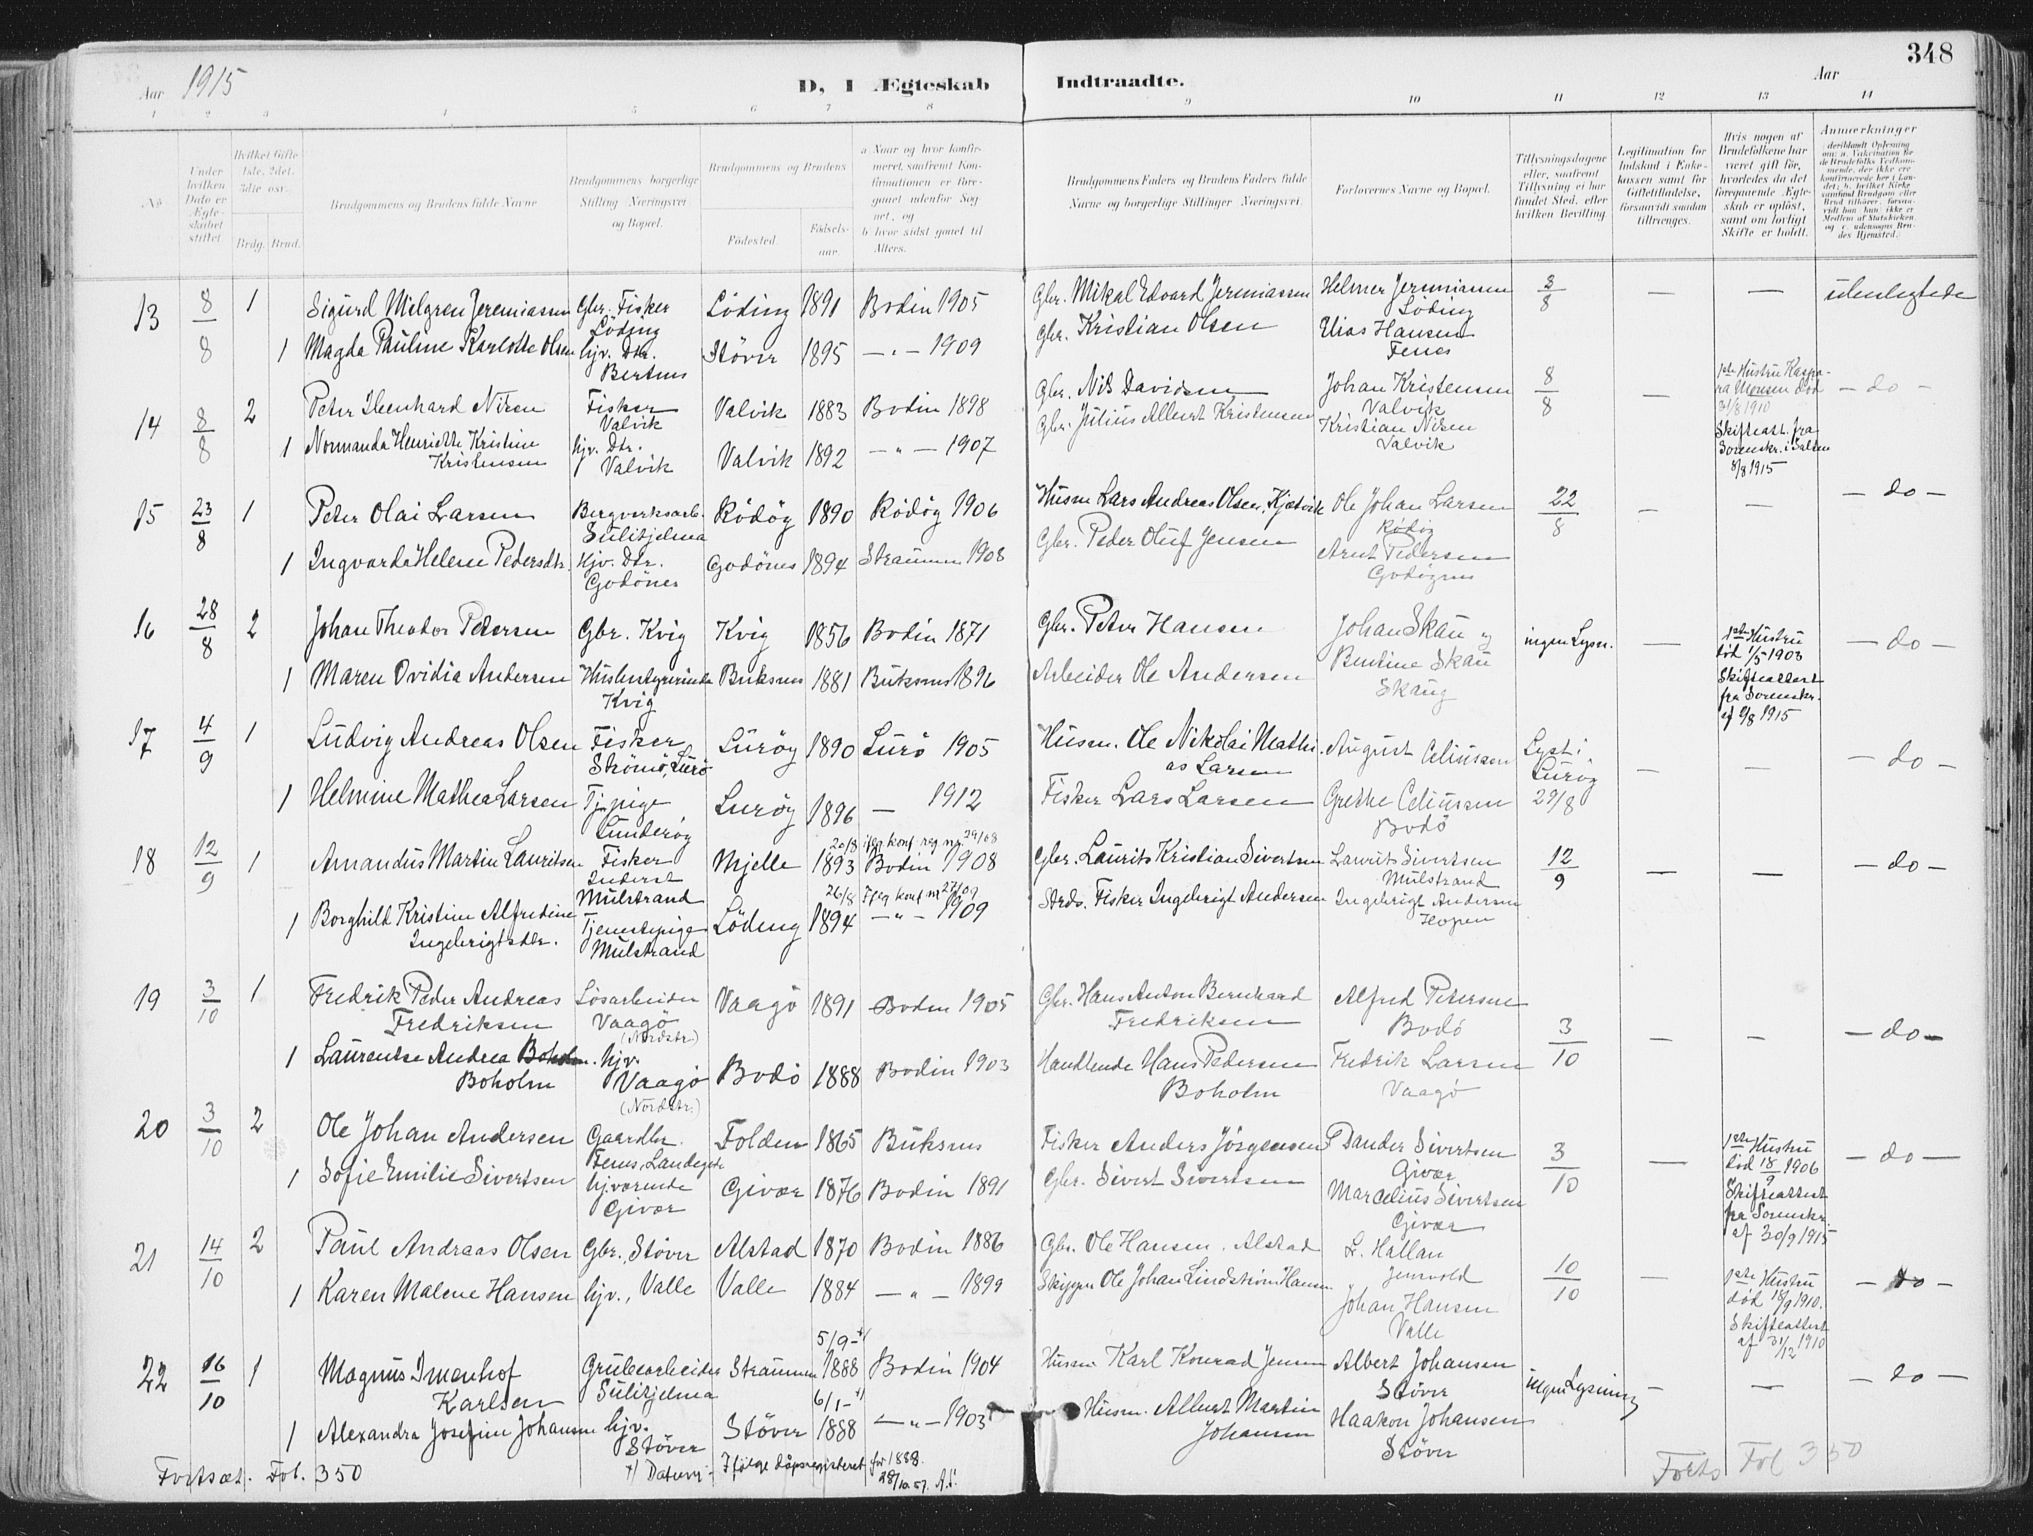 348
Aar 1915
D, I Ægteskab Indtraadte.
Aar
1 2 3 4 5 6 7 8 9 10 11 12 13 14
No
Under hvilken Dato er Ægteskabet stiftet
Hvilket Gifte 1ste, 2det, 3die osv.
Brdg. Brud.
Brudgommens og Brudens fulde Navne
Brudgommens borgerlige Stilling Næringsvei og Bopæl.
Brudgommens og Brudens
Fødested.
Fødselsaar.
a Naar og hvor konfirmeret, saafremt Konfirmationen er foregaaet udenfor Sognet, og
b hvor sidst gaaet til Alters.
Brudgommens Faders og Brudens Faders fulde Navne og borgerlige Stillinger Næringsvei
Forlovernes Navne og Bopæl.
Tillysningsdagene eller, saafremt Tillysning ei har fundet Sted, efter hvilken Bevilling
Legitimation for Indskud i Enkekassen samt for Giftetilladelse, forsaavidt saadan tiltrænges.
Hvis nogen af Brudefolkene har været gift før, hvorledes da det foregaaende Ægteskab er opløst, samt om lovligt Skifte er holdt.
Anmærkninger
13 8/8 1 Sigurd Melgren Jeremiassen Gbr. Fisker Löding Löding 1891 Bodin 1905 Gbr. Mikal Edvard Jeremiassen Helmer Jeremiassen Löding 8/8 — — ubeslegtede
1 Magda Pauline Karlotte Olsen hjv. Dtr. Bertnes Støver 1895 — " — 1909 Gbr. Kristian Olsen Elias Hansen Fenes
14 8/8 2 Peter Ibenhard Nilsen Fisker Valvik Valvik 1883 Bodin 1898 Gbr. Nils Davidsen Johan Kristensen Valvik 8/8 — 1ste Hustru Kaspara Monsen död 31/8 1910 Skifteatt. fra Sorenskr. i Salten 8/8 1915 — do —
1 Normanda Henriette Kristine Kristensen hjv. Dtr. Valvik Valvik 1892 — " — 1907 Gbr. Julius Albert Kristensen Kristian Nilsen Valvik
15 23/8 1 Peter Olai Larsen Bergverksarb. Sulitjelma Rödöy 1890 Rödöy 1906 Husm Lars Andreas Olsen, Kjætvik Ole Johan Larsen Rödöy 22/8 — — — do —
1 Ingvarda Helene Pedersdtr. hjv. Dtr. Godönes Godönes 1894 Straumen 1908 Gbr. Peder Oluf Jensen Arnt Pedersen Godøynes
16 28/8 2 Johan Theodor Petersen Gbr. Kvig Kvig 1856 Bodin 1871 Gbr. Peter Hansen Johan Skau og ingen Lysn. — 1ste Hustru död 1/5 1903 Skifteattest fra Sorenskr. af 9/8 1915 — do —
1 Maren Ovidia Andersen Husbestyrerinde Kvig Buksnes 1881 Buksnes 1896 Arbeider Ole Andersen Bentine Skau Skaug
17 4/9 1 Ludvig Andreas Olsen Fisker Strömö, Lurö Luröy 1890 Lurö 1905 Husm. Ole Nikolai Mathias Larsen August Celiussen Lyst i Luröy 29/8 — — — do —
1 Helmine Mathea Larsen Tj.pige Sunderöy Luröy 1896 — 1912 Fisker Lars Larsen Grethe Celiussen Bodö
18 12/9 1 Amandus Martin Lauritsen Fisker Mulstrand Mjelle 20/8 1893 Bodin 1908 Gbr. Laurits Kristian Sivertsen Laurits Sivertsen Mulstrand 12/9 — — — do —
1 Borghild Kristine Alfredine Ingebrigtsdtr. Tjenestepige Mulstrand Löding 26/8 1894 — " — 1909 Strds. Fisker Ingebrigt Andersen Ingebrigt Andersen Hopen
19 3/10 1 Fredrik Peder Andreas Fredriksen Løsarbeider Vaagö (Nordstr.) Vaagö 1891 Bodin 1905 Gbr. Hans Anton Bernhard Fredriksen Alfred Petersen Bodö 3/10 — — — do —
1 Laurentse Andrea Boholm hjv. Vaagö (Nordstr.) Bodö 1888 Bodin 1903 Handlende Hans Pedersen Boholm Fredrik Larsen Vaagö
20 3/10 2 Ole Johan Andersen Gaardbr. Fenes, Landegode Folden 1865 Buksnes Fisker Anders Jörgensen Dander Sivertsen Givær 3/10 — 1ste Hustru död 18/9 1906 Skifteattest fra Sorenskr. af 30/9 1915 — do —
1 Sofie Emilie Sivertsen hjværende Givær Givær 1876 Bodin 1891 Gbr. Sivert Sivertsen Marcelius Sivertsen Givær
21 14/10 2 Paul Andreas Olsen Gbr., Støver Alstad 1870 Bodin 1886 Gbr. Ole Hansen. Alstad L. Hallan Jensvold 10/10 — 1ste Hustru död 18/9 1910. Skifteattest af 31/12 1910 — do —
1 Karen Malene Hansen hjv., Valle Valle 1884 — " — 1899 Skipper Ole Johan Lindstrøm Hansen Johan Hansen Valle
22 16/10 1 Magnus Imenhof Karlsen Grubearbeider Sulitjelma Straumen 5/9 – +/ 1888 Bodin 1904 Husm. Karl Konrad Jensen Albert Johansen Støver ingen Lysning — — — do —
1 Alexandra Josefine Johansen hjv. Støver Støver 6/1 – +/ 1888 — " — 1903 Husm. Albert Martin Johansen Haakon Johansen Støver
Fortsæt. Fol. 350
+/ Ifølge dåpsregisteret for 1888. 28/10. 57.
Forts Fol 350